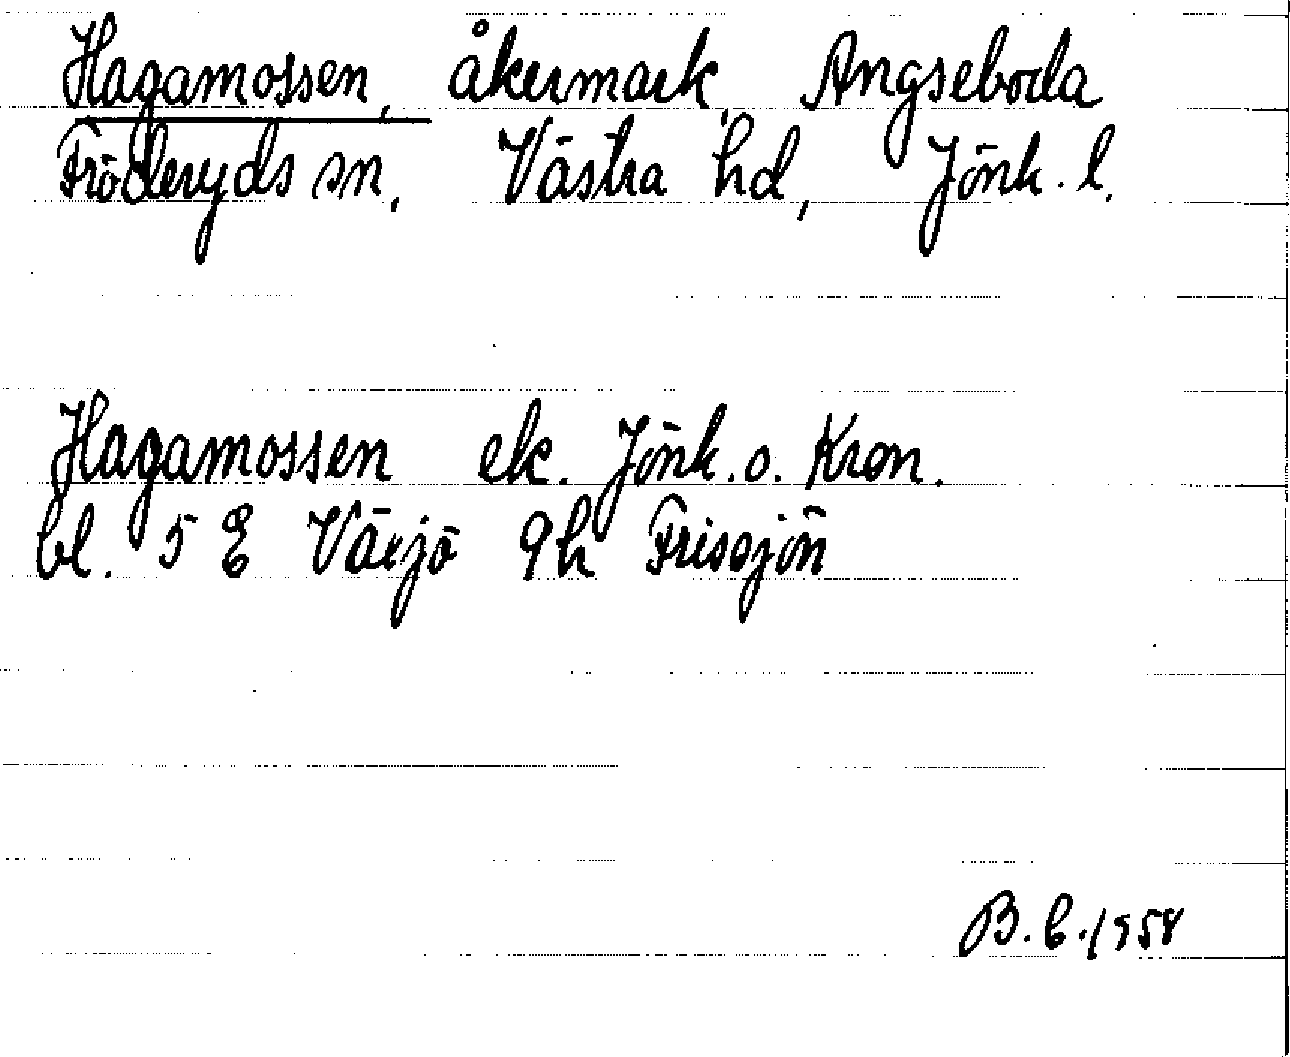 Hagamossen, åkermark, Angseboda
Fröderyds sn, Västra hd, Jönk. l.
Hagamossen ek. Jönk. o. Kron.
bl. 5 E Växjö 9h Frissjön
B. C. 1958